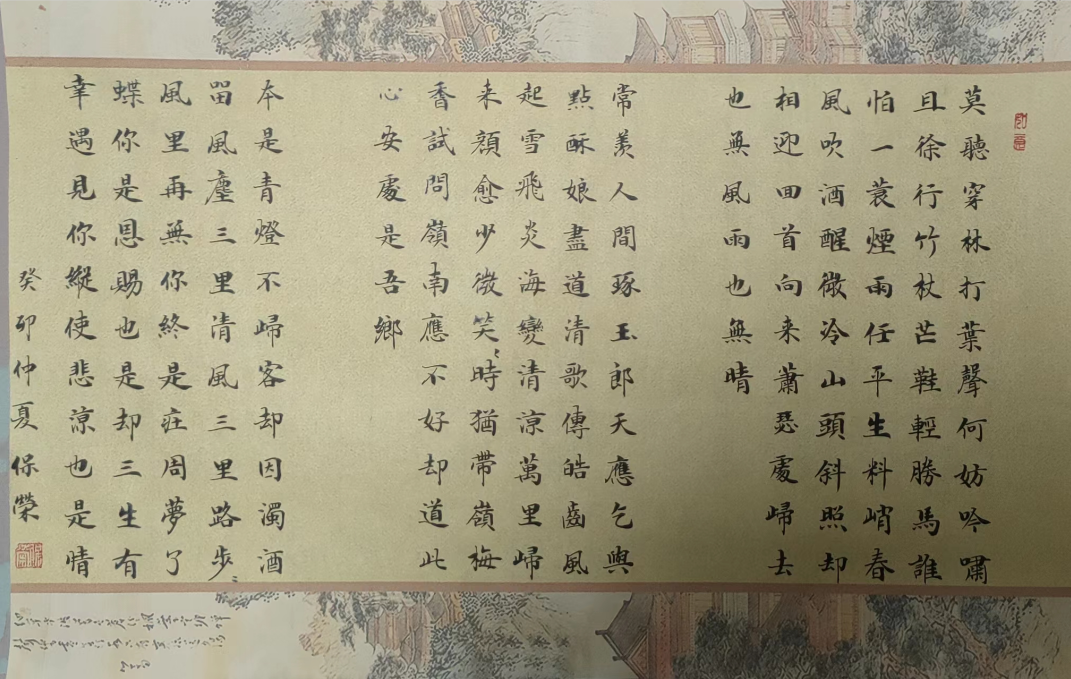 莫聽穿林打葉聲何妨吟嘯
且徐行竹杖芒鞋輕勝馬誰
怕一蓑煙雨任平生料峭春
風吹酒醒微冷山頭斜照却
相迎回首向来蕭瑟處歸去
也無風雨也無晴
常羨人間琢玉郎天應乞與
點酥娘盡道清歌傳皓齒風
起雪飛炎海變清涼萬里歸
来顏愈少微笑〻時猶帶嶺梅
香試問嶺南應不好却道此
心安處是吾鄉
本是青燈不歸客却因濁酒
留風塵三里清風三里路步〻
風里再無你終是莊周夢了
蝶你是恩賜也是却三生有
幸遇見你縱使悲涼也是情
癸卯仲夏保榮